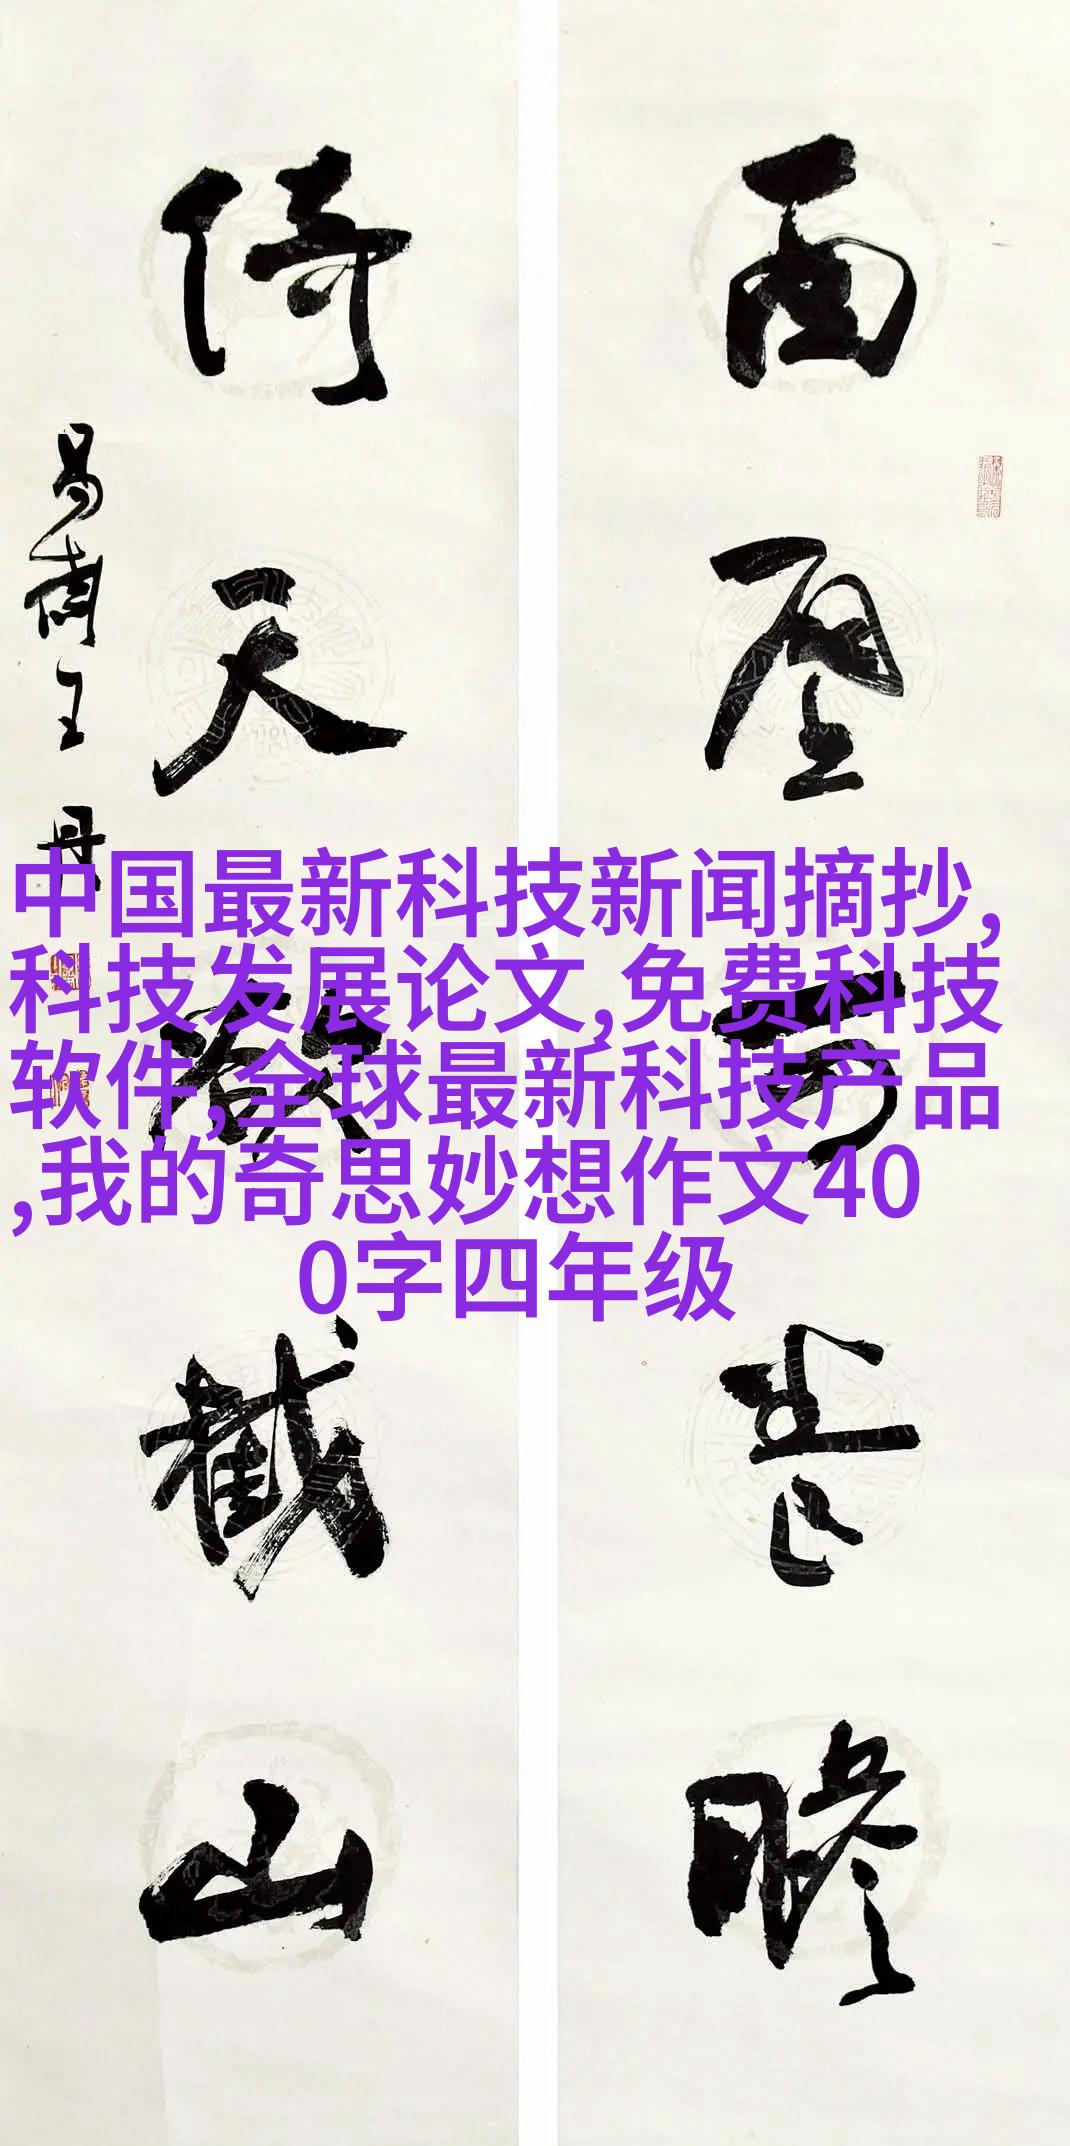 面壁
倚天
截山
王丹
中国最新科技新闻摘抄,
科技发展论文,免费科技
软件,全球最新科技产品
,我的奇思妙想作文40
0字四年级